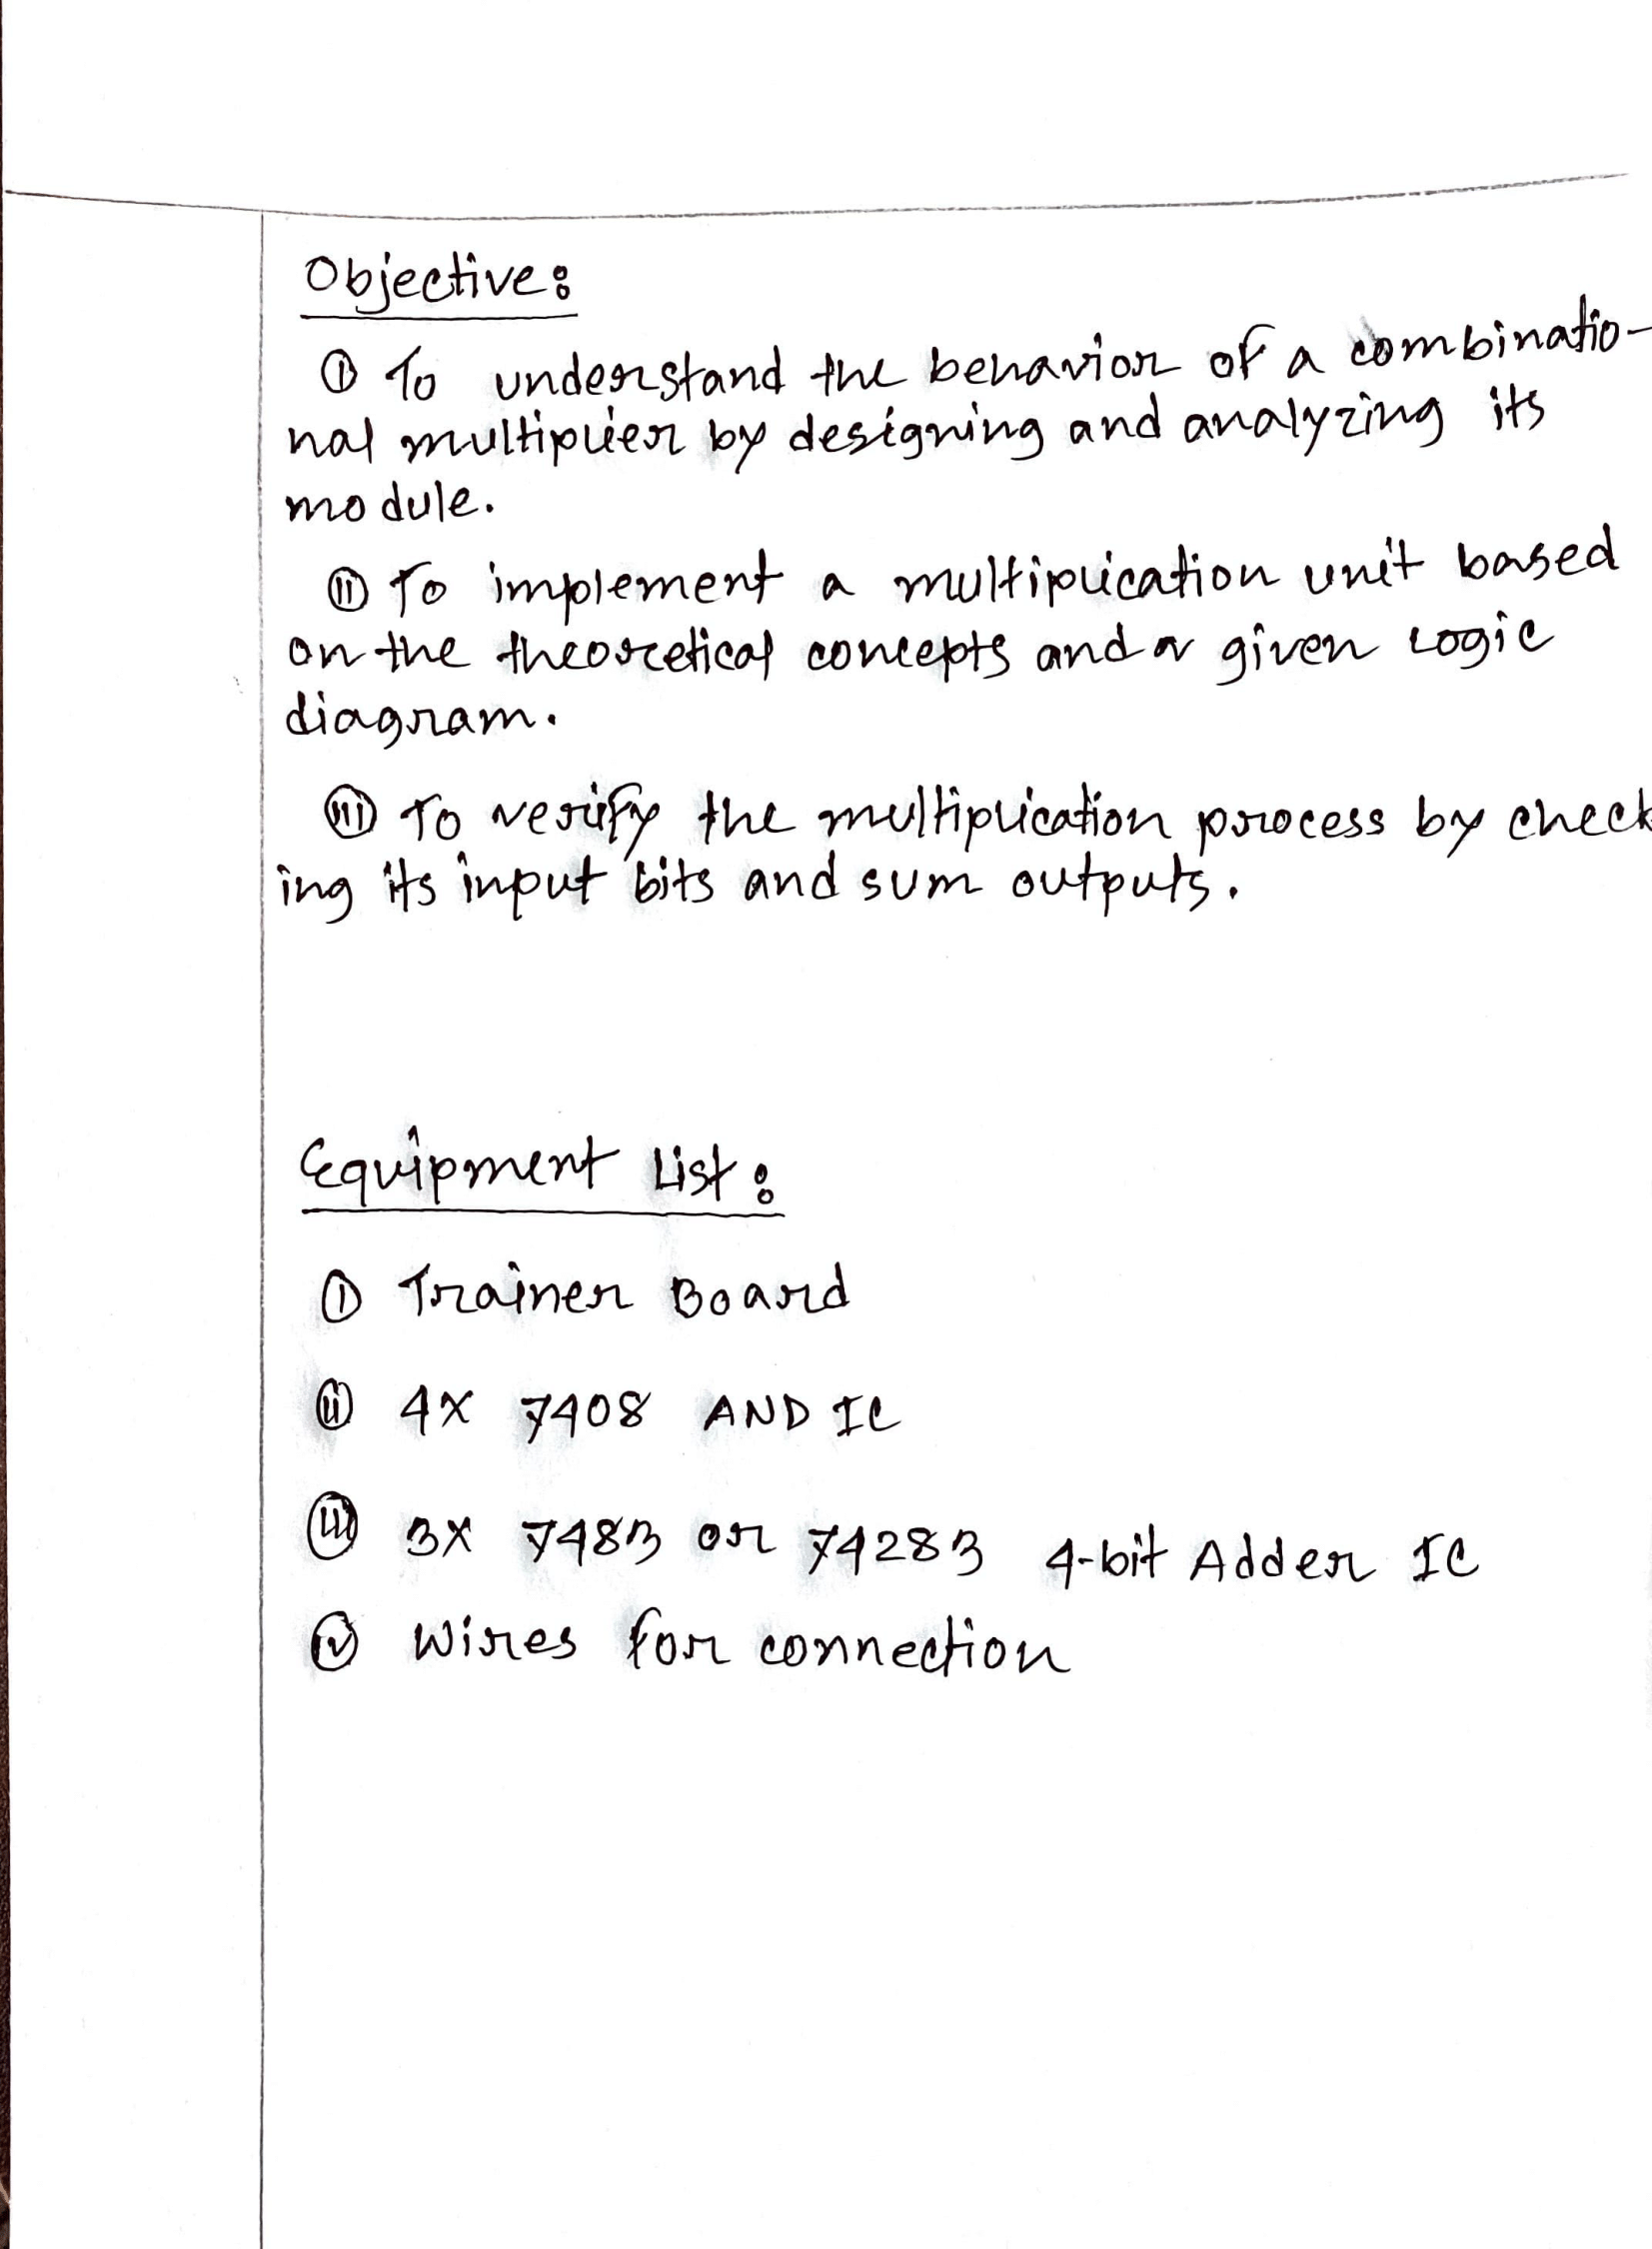 Objective:
(i) To understand the behavior of a combinatio-
nal multiplier by designing and analyzing its
module.
(ii) To implement a multiplication unit based
on the theoretical concepts and a given logic
diagram.
(iii) To verify the multiplication process by check
ing its input bits and sum outputs.
Equipment List:
(i) Trainer Board
(ii) 4x 7408 AND IC
(iii) 3x 7483 or 74283 4-bit Adder IC
(iv) Wires for connection